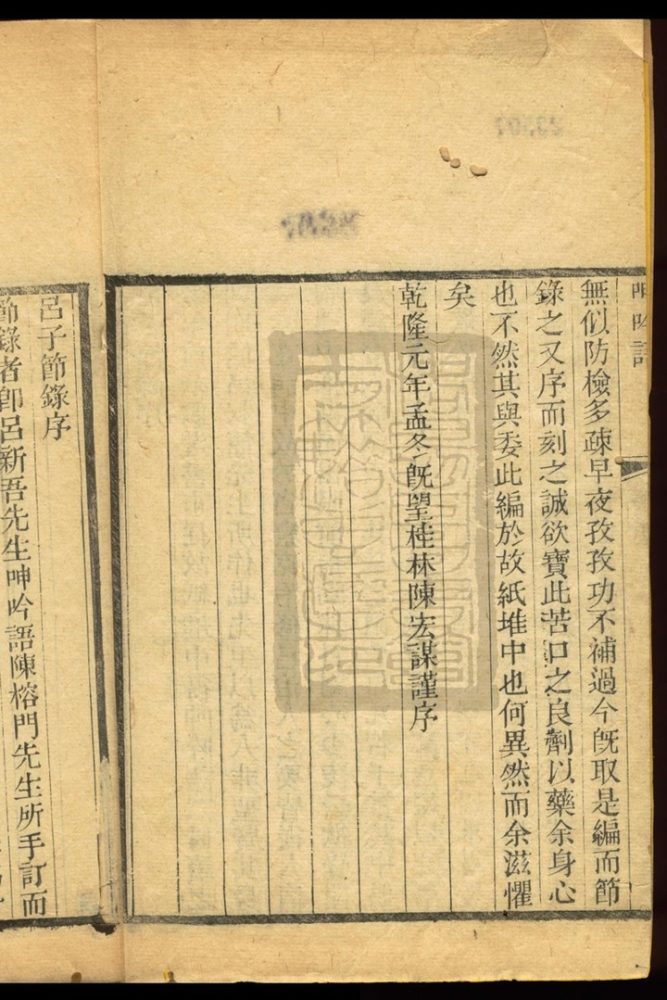 呻吟語
無似防檢多疎早夜孜孜功不補過今旣取是編而節
錄之又序而刻之誠欲寶此苦口之良劑以藥余身心
也不然其與委此編於故紙堆中也何異然而余滋懼
矣
乾隆元年孟冬旣望桂林陳宏謀謹序
呂子節錄序
節錄者卽呂新吾先生呻吟語陳榕門先生所手訂而